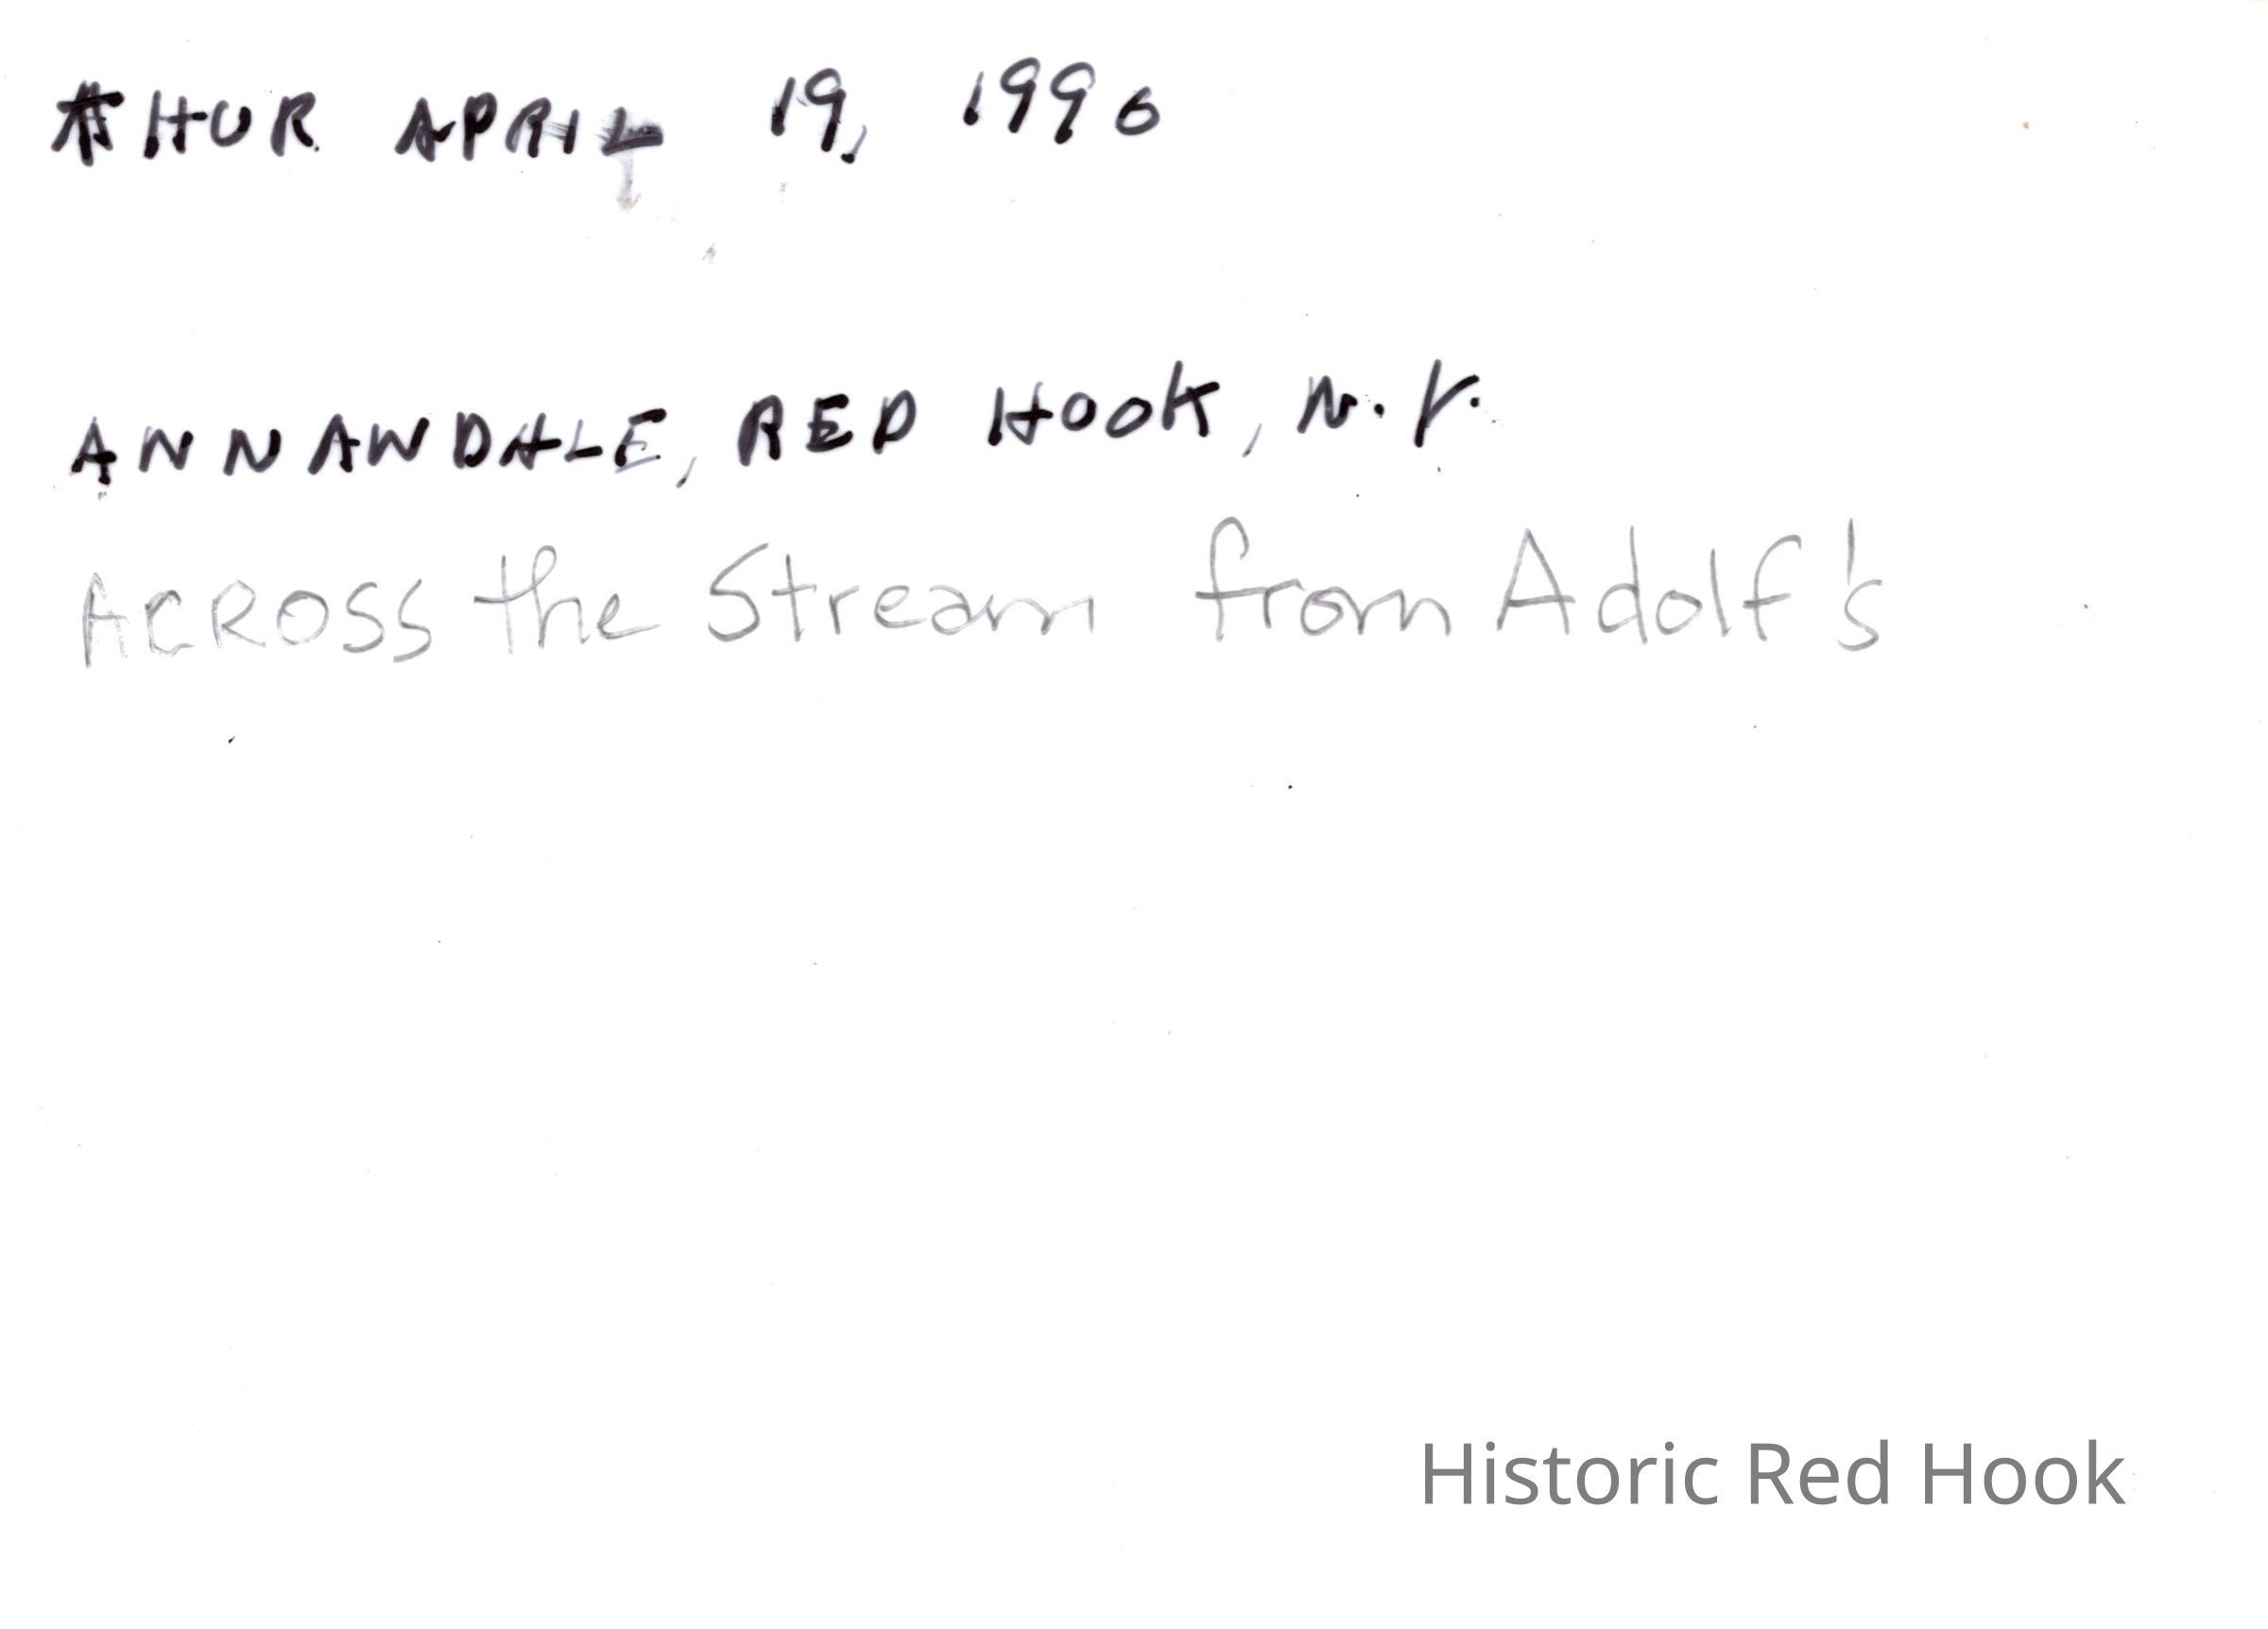 THUR APRIL 19, 1990
ANNANDALE, RED HOOK, N.Y.
ACROSS the Stream from Adolf's
Historic Red Hook